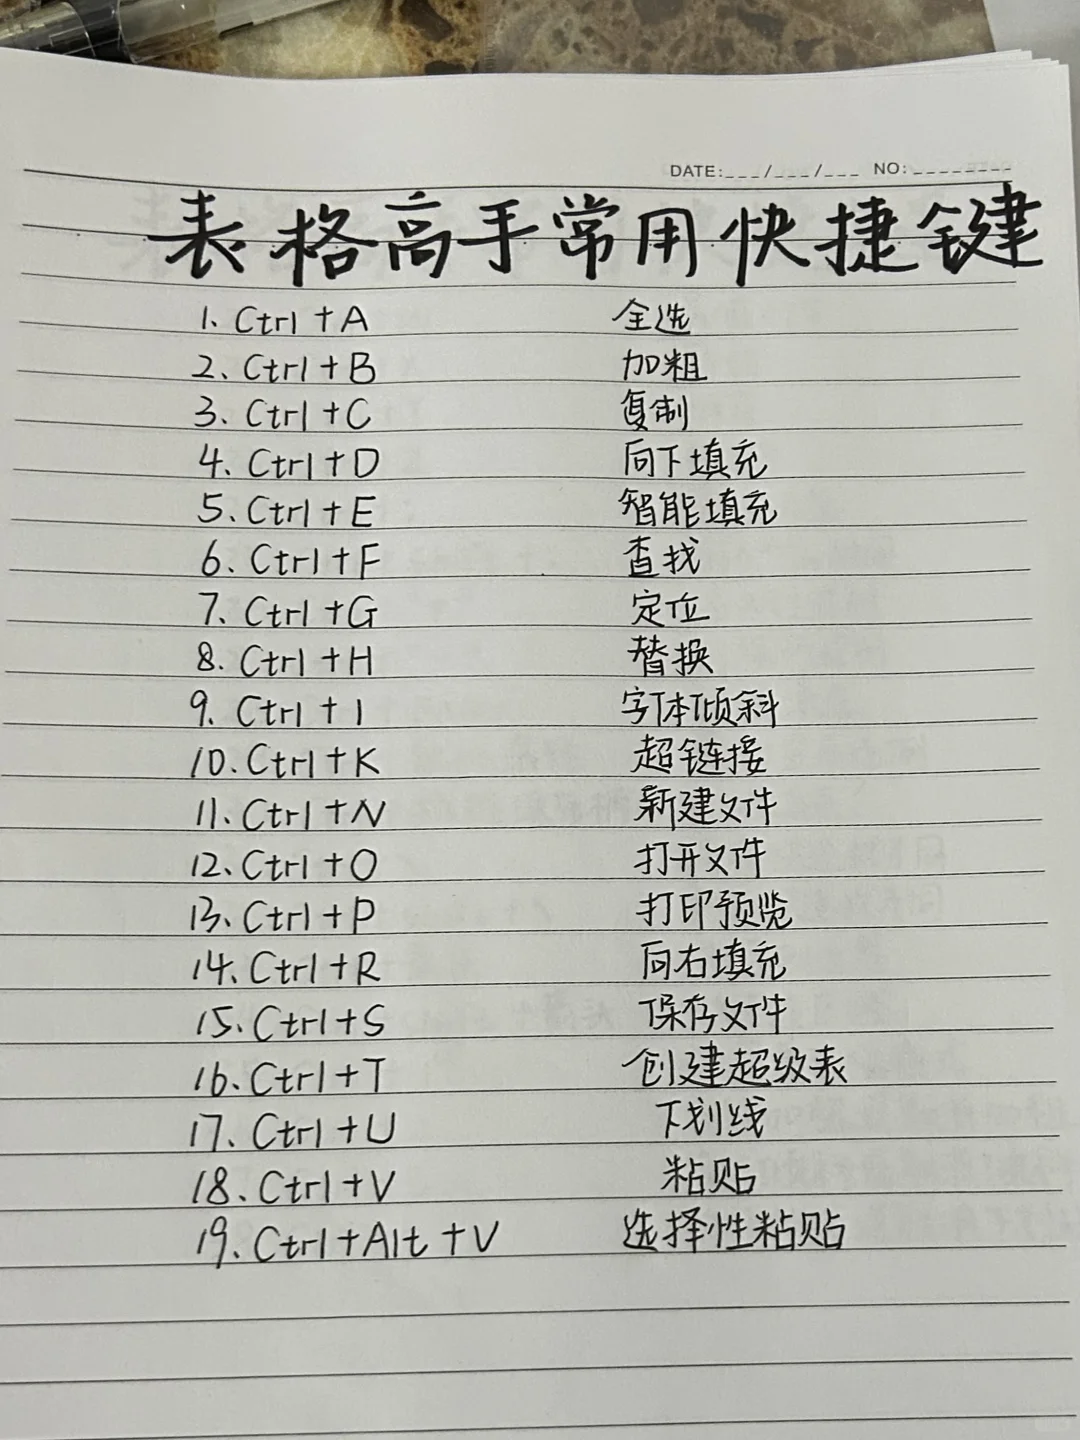 DATE:___/___/___ NO:________
表格高手常用快捷键
1、Ctrl+A 全选
2、Ctrl+B 加粗
3、Ctrl+C 复制
4、Ctrl+D 向下填充
5、Ctrl+E 智能填充
6、Ctrl+F 查找
7、Ctrl+G 定位
8、Ctrl+H 替换
9、Ctrl+I 字体倾斜
10、Ctrl+K 超链接
11、Ctrl+N 新建文件
12、Ctrl+O 打开文件
13、Ctrl+P 打印预览
14、Ctrl+R 向右填充
15、Ctrl+S 保存文件
16、Ctrl+T 创建超级表
17、Ctrl+U 下划线
18、Ctrl+V 粘贴
19、Ctrl+Alt+V 选择性粘贴